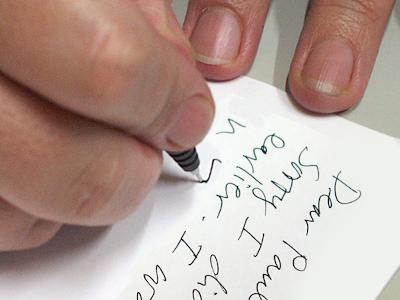 Dear Paul
Sorry I di
earlier. I wa
h